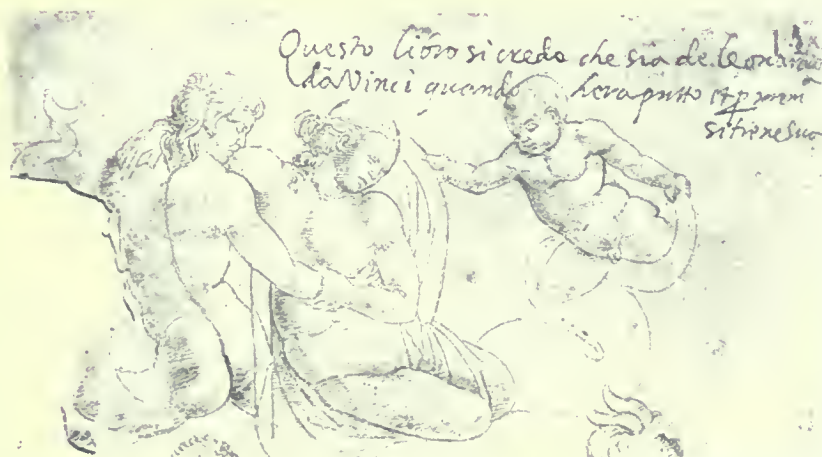 Questo libro si crede che sia de Leonardo
da Vinci quando hera putto et p mem
si tiene suo